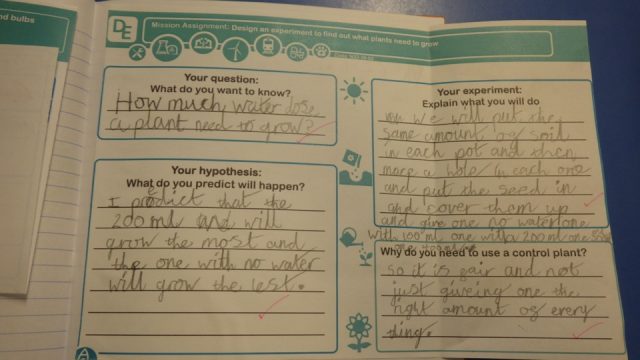 nd bulbs
DE
Mission Assignment: Design an experiment to find out what plants need to grow
Your question:
What do you want to know?
How much water dose
a plant need to grow?
Your hypothesis:
What do you predict will happen?
I predict that the
200ml will
grow the most and
the one with no water
will grow the lest.
Your experiment:
Explain what you will do
we will put the
same amount of soil
in each pot and then
make a hole in each one
and put the seed in
and cover them up
and give one no water one
with 100 ml one with a 200ml one
Why do you need to use a control plant?
so it is fair and not
just giveing one the
right amount of every
thing.